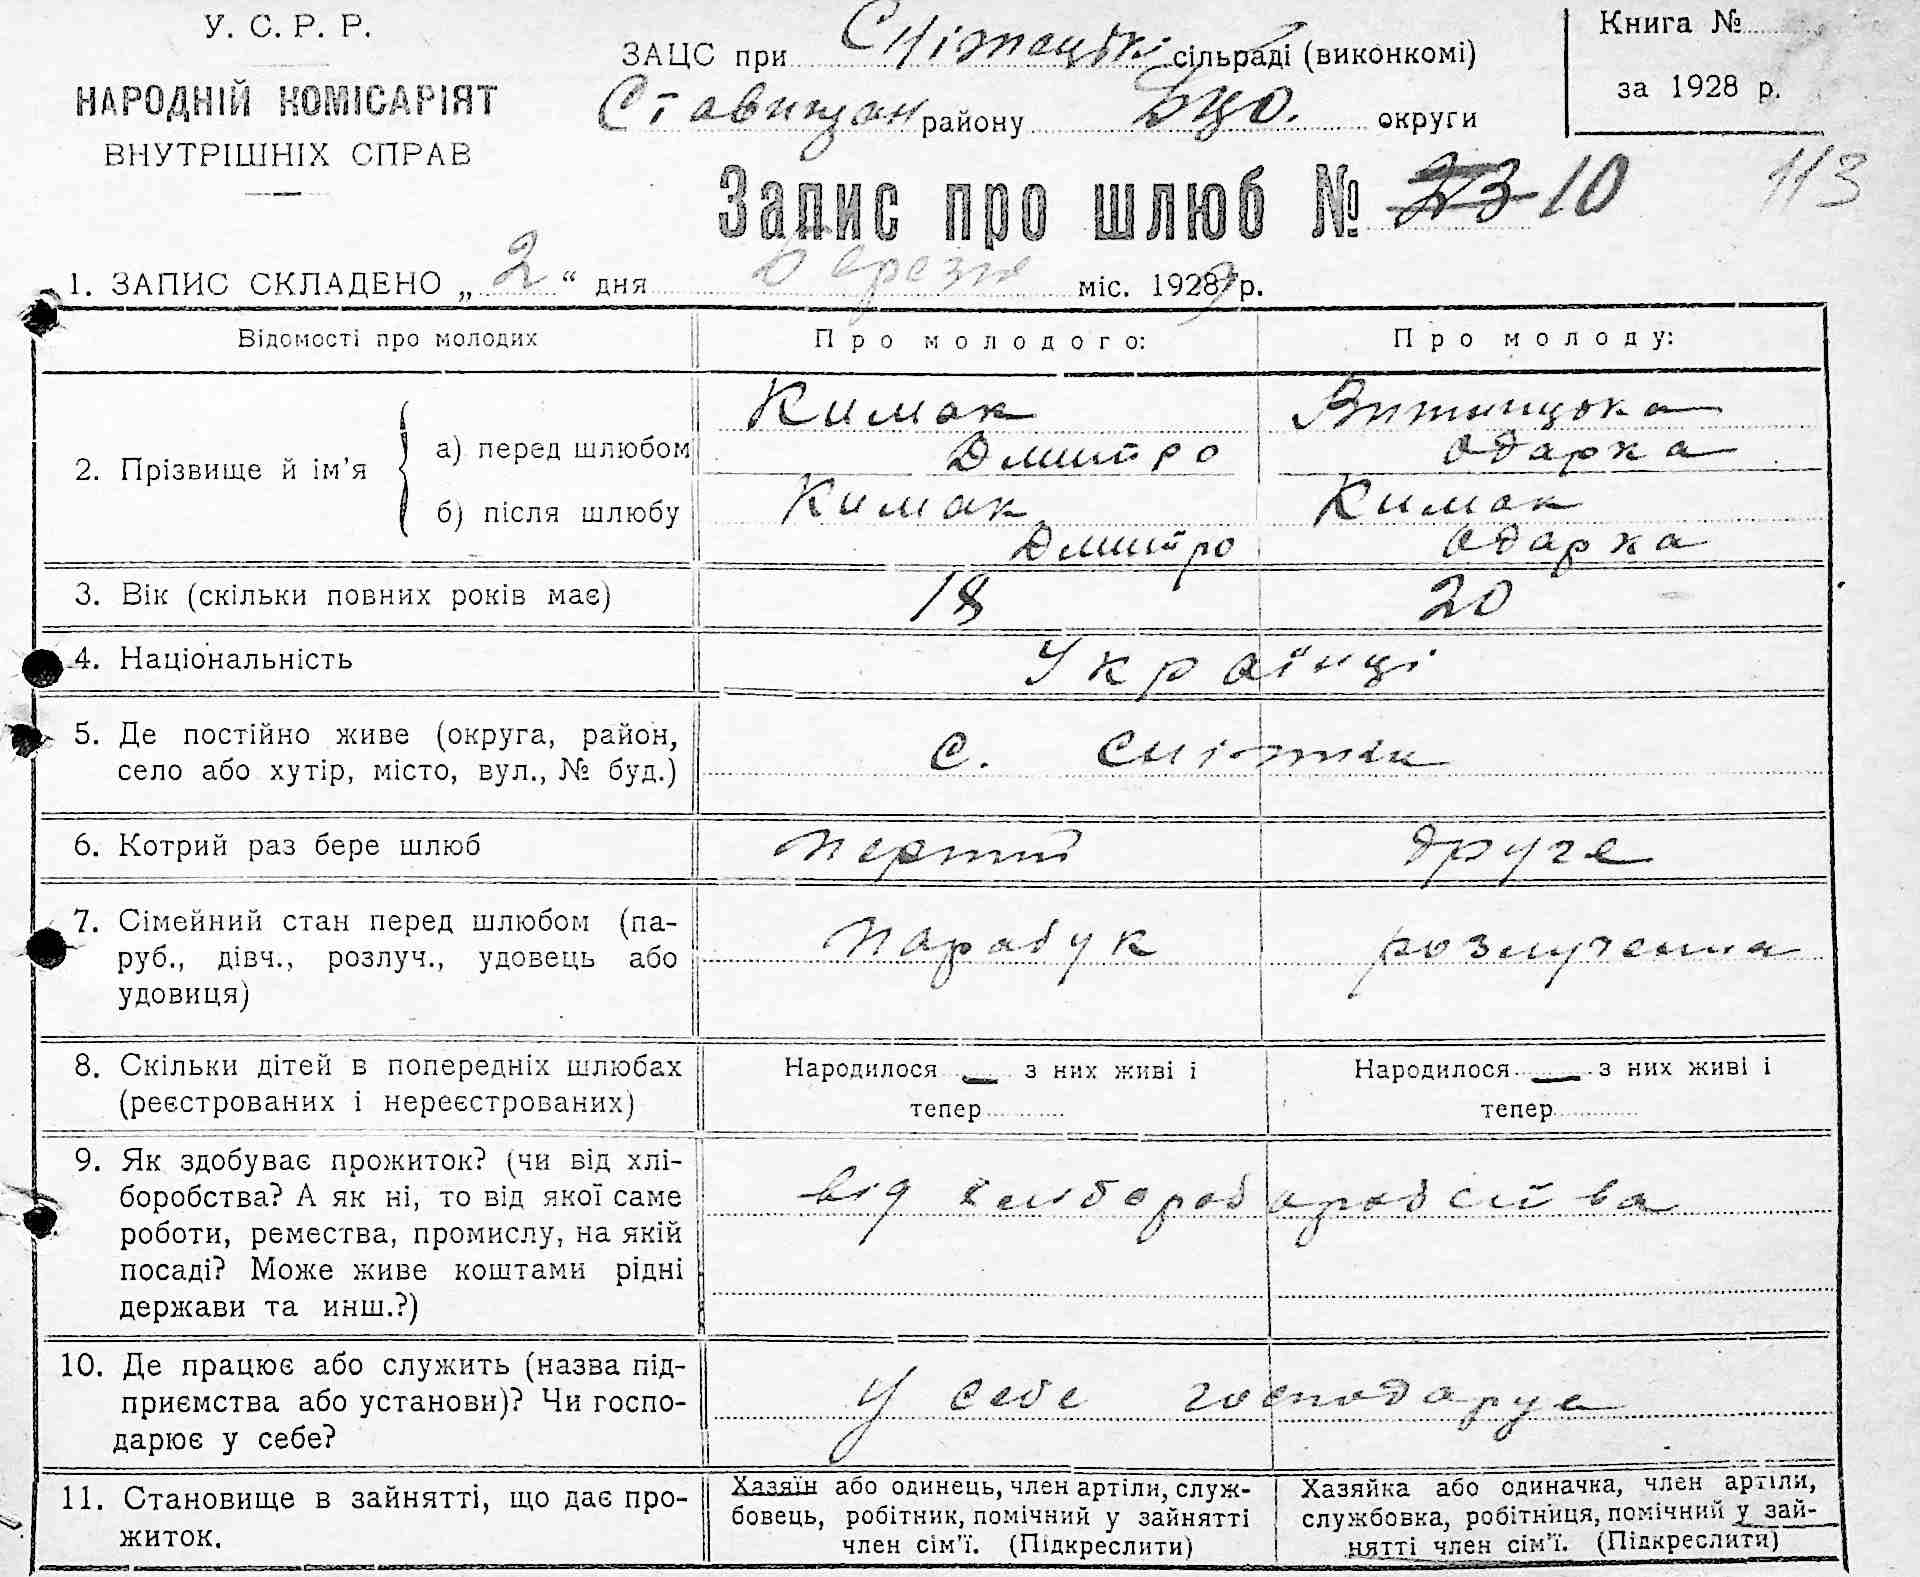 У. С. Р. Р.
НАРОДНІЙ КОМІСАРІЯТ
ВНУТРІШНІХ СПРАВ
ЗАЦС при сільраді (виконкомі)
Ставищан району Бцо. округи
Книга №
за 1928 р.
Запис про шлюб № 10
113
1. ЗАПИС СКЛАДЕНО „ 2 “ дня Березня міс. 1928 р.
Відомості про молодих
Про молодого:
Про молоду:
2. Прізвище й ім’я
а) перед шлюбом
б) після шлюбу
Кимак
Дмитро
Кимак
Дмитро
Одарка
Кимак
Одарка
3. Вік (скільки повних років має)
18
20
4. Національність
Українці
5. Де постійно живе (округа, район,
село або хутір, місто, вул., № буд.)
с.
6. Котрий раз бере шлюб
перший
друге
7. Сімейний стан перед шлюбом (па-
руб., дівч., розлуч., удовець або
удовиця)
парабук
розлученна
8. Скільки дітей в попередніх шлюбах
(реєстрованих і нереєстрованих)
Народилося — з них живі і
тепер
Народилося — з них живі і
тепер
9. Як здобуває прожиток? (чи від хлі-
боробства? А як ні, то від якої саме
роботи, ремества, промислу, на якій
посаді? Може живе коштами рідні
держави та инш.?)
від
10. Де працює або служить (назва під-
приємства або установи)? Чи госпо-
дарює у себе?
у себе господарує
11. Становище в зайнятті, що дає про-
житок.
Хазяїн або одинець, член артіли, служ-
бовець, робітник, помічний у зайнятті
член сім'ї. (Підкреслити)
Хазяйка або одиначка, член артіли,
службовка, робітниця, помічний у зай-
нятті член сім'ї. (Підкреслити)